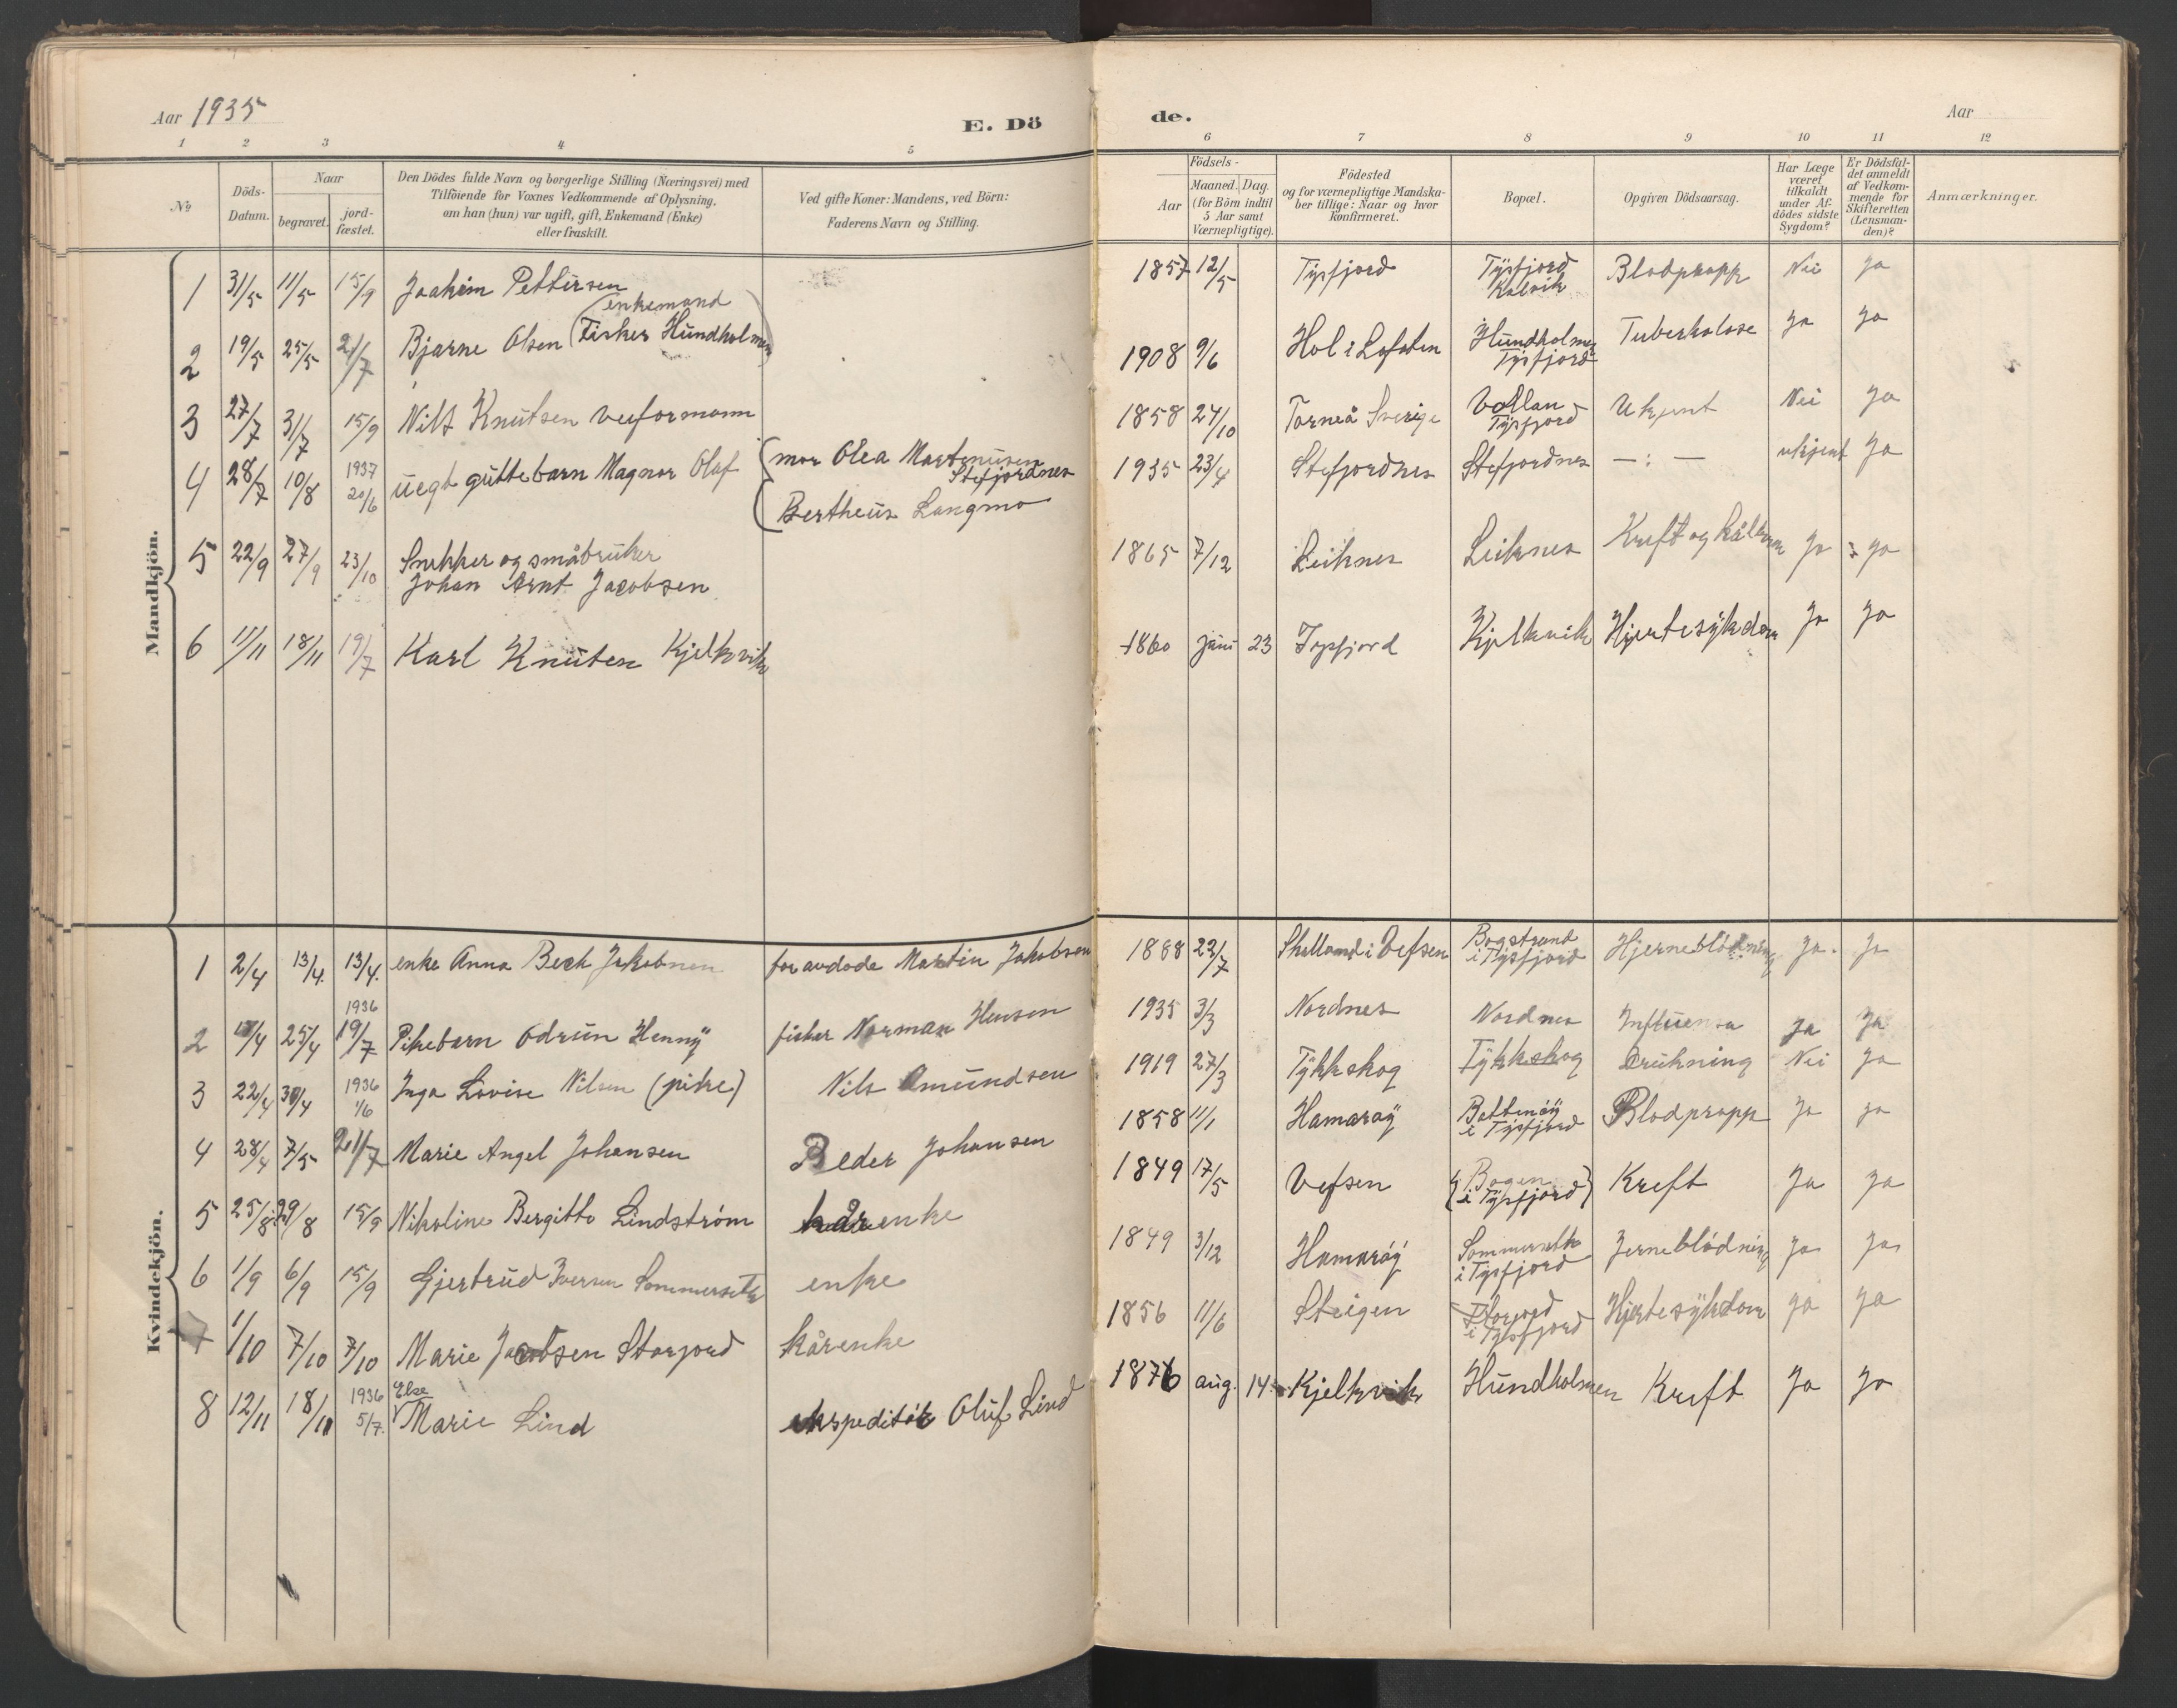 Aar 1935
E. Dö
de.
Aar
1 2 3 4 5 6 7 8 9 10 11 12
№
Döds-
Datum.
Naar
begravet.
jord-
fæstet.
Den Dödes fulde Navn og borgerlige Stilling (Næringsvei) med
Tilföiende for Voxnes Vedkommende af Oplysning,
om han (hun) var ugift, gift, Enkemand (Enke)
eller fraskilt.
Ved gifte Koner: Mandens, ved Börn:
Faderens Navn og Stilling.
Födsels-
Aar
Maaned. Dag.
(for Börn indtil
5 Aar samt
Værnepligtige).
Födested
og for værnepligtige Mandska-
ber tillige: Naar og hvor
konfirmeret.
Bopæl.
Opgiven Dödsaarsag.
Har Læge
været
tilkaldt
under Af-
dödes sidste
Sygdom?
Er Dödsfal-
det anmeldt
af Vedkom-
mende for
Skifteretten
(Lensman-
den)?
Anmærkninger.
Mandkjön.
1 31/5 11/5 15/9 Joakim Pettersen 1857 12/5 Tysfjord Tysfjord Blodpropp Nei Ja
enkemand Kalvik
2 19/5 25/5 21/7 Bjarne Olsen (Fisker Hundholmen) 1908 9/6 Hol i Lofoten Hundholmen Tuberkolose Ja Ja
Tysfjord
3 27/7 31/7 15/9 Nils Knutsen veiformann 1858 27/10 Torneå Sverige Vollan Ukjent Nei Ja
Tysfjord
4 28/7 10/8 1937 20/6 uegt guttebarn Magnor Olaf (mor Olea Martenusen 1935 23/4 Stefjordnes Stefjordnes — : — ukjent Ja
Stefjordnes
Bertheus Langmo
5 22/9 27/9 23/10 Snekker og småbruker 1865 7/12 Leiknes Leiknes Kreft og Ja Ja
Johan Arnt Jacobsen
6 11/11 18/11 19/7 Karl Knutsen Kjelkvik 1860 juni 23 Tysfjord Kjelkvik Hjertesykdom Ja Ja
Kvindekjön.
1 2/4 13/4. 13/4. enke Anna Beck Jakobsen for avdöde Martin Jakobsen 1888 22/7 i Vefsen Bogstrand Hjerneblödning Ja. Ja
i Tysfjord
2 /4 25/4 1936 19/7 Pikebarn Odrun Henny fisker Norman Hansen 1935 3/3 Nordnes Nordnes Influensa Ja Ja
3 22/4 30/4 1936 1/6 Inga Lovise Nilsen (pike) Nils Amundsen 1919 27/3 Tykkskog Tykkskog Drukning Nei Ja
4 28/4 7/5 21/7 Marie Angel Johansen Peder Johansen 1858 11/1 Hamaröy i Tysfjord Blodpropp Ja Ja
5 25/8 29/8 15/9 Nikoline Bergitte Lindström kårenke 1849 17/5 Vefsen (Bogen Kreft Ja Ja
i Tysfjord)
6 1/9 6/9 15/9 Gjertrud Iversen Sommerseth enke 1849 3/12 Hamaröy Sommerseth Jerneblödning Ja Ja
i Tysfjord
7 1/10 7/10 7/10 Marie Jacobsen Storjord kårenke 1856 11/6 Steigen Storjord Hjertesykdom Ja Ja
i Tysfjord
8 12/11 18/11 1936 5/7. Else Marie Lind ekspeditör Oluf Lind 1876 aug. 14. Kjelkvik Hundholmen Kreft Ja Ja